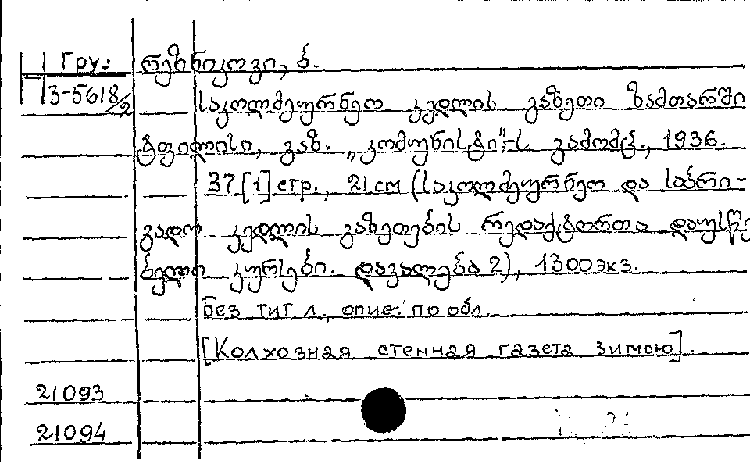 Гру.: რეზნიკოვი, ბ.
3-5618/2
საკოლმეურნეო კედლის გაზეთი ზამთარში
ტფილისი, გაზ. „კომუნისტი“-ს გამომც., 1936.
37 [1] стр., 21 см (საკოლმეურნეო და საბრი-
გადო კედლის გაზეთების რედაქტორთა დაუსწრე
ბელი კურსები. დავალება 2), 1300 экз.
без тит л., опис. по обл.
[Колхозная стенная газета зимою].
21093
21094